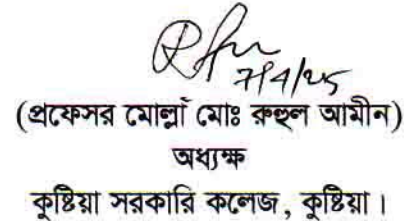 7/4/25
(প্রফেসর মোল্লা মোঃ রুহুল আমীন)
অধ্যক্ষ
কুষ্টিয়া সরকারি কলেজ, কুষ্টিয়া।